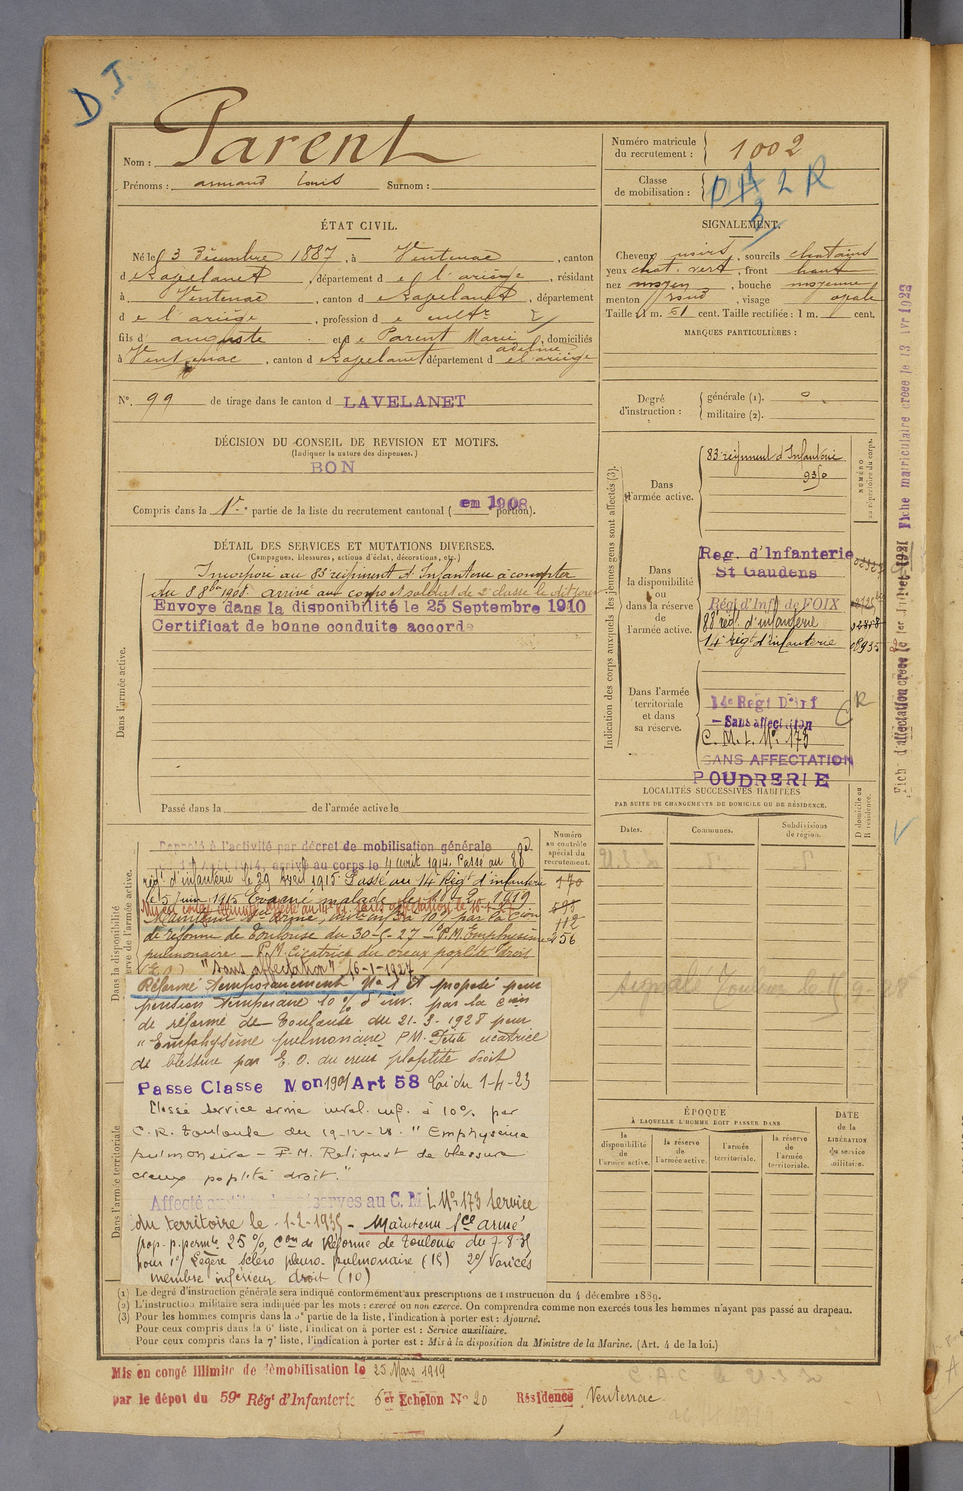 D.J.
Nom : Parent
Prénoms : armand Louis Surnom :
Numéro matricule du recrutement : 1002
Classe de mobilisation : 2 R
ÉTAT CIVIL.
Né le 3 Décembre 1887, à Ventenac, canton
d e Lavelanet, département d e l'ariège, résidant
à Ventenac, canton d e Lavelanet, département
d e l'ariège, profession d e cultr
fils d' auguste et d e Parent Marie adeline, domiciliés
à Ventenac, canton d e Lavelanet département d e l'ariège
N°. 99 de tirage dans le canton d LAVELANET
DÉCISION DU CONSEIL DE REVISION ET MOTIFS.
(Indiquer la nature des dispenses.)
BON
Compris dans la 1re partie de la liste du recrutement cantonal (en 1908 portion).
DÉTAIL DES SERVICES ET MUTATIONS DIVERSES.
(Campagnes, blessures, actions d'éclat, décorations, etc.)
Dans l'armée active.
Incorporé au 83e régiment d'Infanterie à compter
du 8 8bre 1908. arrivé au corps et soldat de 2e classe le dit jour
Envoye dans la disponibilité le 25 Septembre 1910
Certificat de bonne conduite accordé
Passé dans la de l'armée active le
SIGNALEMENT.
Cheveux noirs, sourcils chatains
yeux chat. vert, front haut
nez moyen, bouche moyenne
menton rond, visage opale
Taille : 1 m. 51 cent. Taille rectifiée : 1 m. cent.
MARQUES PARTICULIÈRES :
Degré d'instruction : générale (1).
militaire (2).
Indication des corps auxquels les jeunes gens sont affectés (3).
NUMÉRO au répertoire du corps.
Dans l'armée active. 83e régiment d'Infanterie
Dans la disponibilité ou dans la réserve de l'armée active.
Reg. d'Infanterie
St Gaudens
Régt d'Inf. de FOIX
88e régt d'infanterie
14e Régt d'infanterie 08935
Dans l'armée territoriale et dans sa réserve.
14e Régt D'Inf
Sans affectation
C. M. I. No 173
SANS AFFECTATION
POUDRERIE
C R
LOCALITÉS SUCCESSIVES HABITÉES
PAR SUITE DE CHANGEMENTS DE DOMICILE OU DE RÉSIDENCE.
Dates. Communes. Subdivisions de région. D domicile ou R résidence.
Dans la disponibilité
Numéro au contrôle spécial du recrutement.
Rappelé à l'activité par décret de mobilisation générale
arrivé au corps le 4 août 1914. Passé au 88e
régt d'infanterie le 29 avril 1915 Passé au 14e Régt d'infanterie
le 5 Juin 1915 Evacué malade le
112
de réforme de Toulouse du 30-5-27 - P.M. Emphysème
456
pulmonaire - P.M. Cicatrice du creux poplité droit
(E.O.) "Sans affectation" 16-1-1927
Réformé temporairement No 1 et proposé pour
pension temporaire 10 % d'inv. par la Cion
de réforme de Toulouse du 21-3-1928 pour
"Emphysème pulmonaire P.M. Petite cicatrice
de blessure par E.O. du creux poplité droit
Passe Classe Mon 1901 Art 58 Loi du 1-4-23
Classé Service armé inval. inf. à 10% par
C.R. Toulouse du 19-12-28. "Emphysème
pulmonaire - P.M. Reliquat de blessure
creux poplité droit."
Affecté réserves au C.M.I. No 173 Service
du territoire le 1-2-1935 - Maintenu Sce armé
prop. p. permte 25 %, Con de Réforme de Toulouse du 7-8-35
pour 1°/ Légère scléro pleuro-pulmonaire (15) 2°/ Varices
membre inférieur droit (10)
Dans l'armée territoriale
ÉPOQUE
À LAQUELLE L'HOMME DOIT PASSER DANS
la disponibilité de l'armée active. la réserve de l'armée active. l'armée territoriale. la réserve de l'armée territoriale.
DATE de la LIBÉRATION du service militaire.
(1) Le degré d'instruction générale sera indiqué conformément aux prescriptions de l'instruction du 4 décembre 1889.
(2) L'instruction militaire sera indiquée par les mots : exercé ou non exercé. On comprendra comme non exercés tous les hommes n'ayant pas passé au drapeau.
(3) Pour les hommes compris dans la 5e partie de la liste, l'indication à porter est : Ajourné.
Pour ceux compris dans la 6e liste, l'indication à porter est : Service auxiliaire.
Pour ceux compris dans la 7e liste, l'indication à porter est : Mis à la disposition du Ministre de la Marine. (Art. 4 de la loi.)
Mis en congé illimité de démobilisation le 25 Mars 1919
par le dépôt du 59e Régt d'Infanterie 6er Echelon No 20 Résidence Ventenac
Fiche d'affectation créée le 1er Juillet 1921 Fiche matriculaire créée le 13 Avr 1922